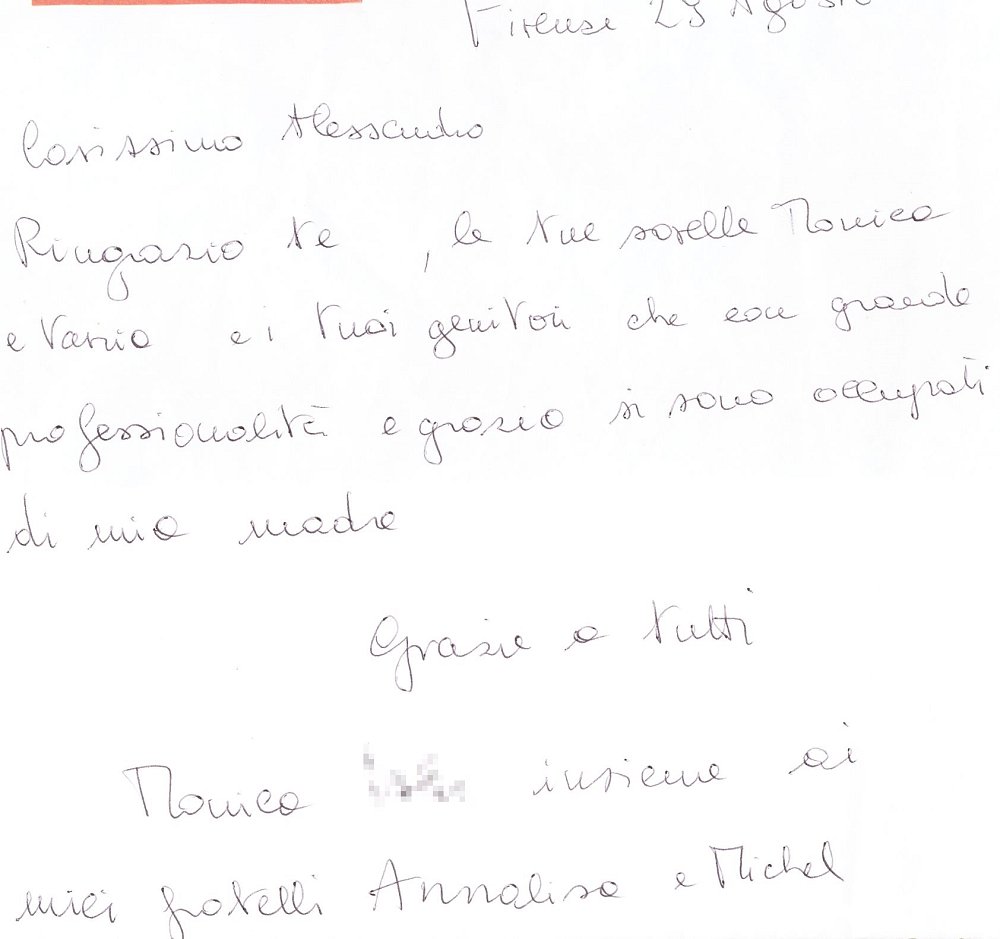 Firenze 29 Agosto
Carissimo Alessandro
Ringrazio te , le tue sorelle Monica
e Vania e i tuoi genitori che con grande
professionalità e grazia si sono occupati
di mia madre
Grazie a tutti
Monica insieme ai
miei fratelli Annalisa e Michel